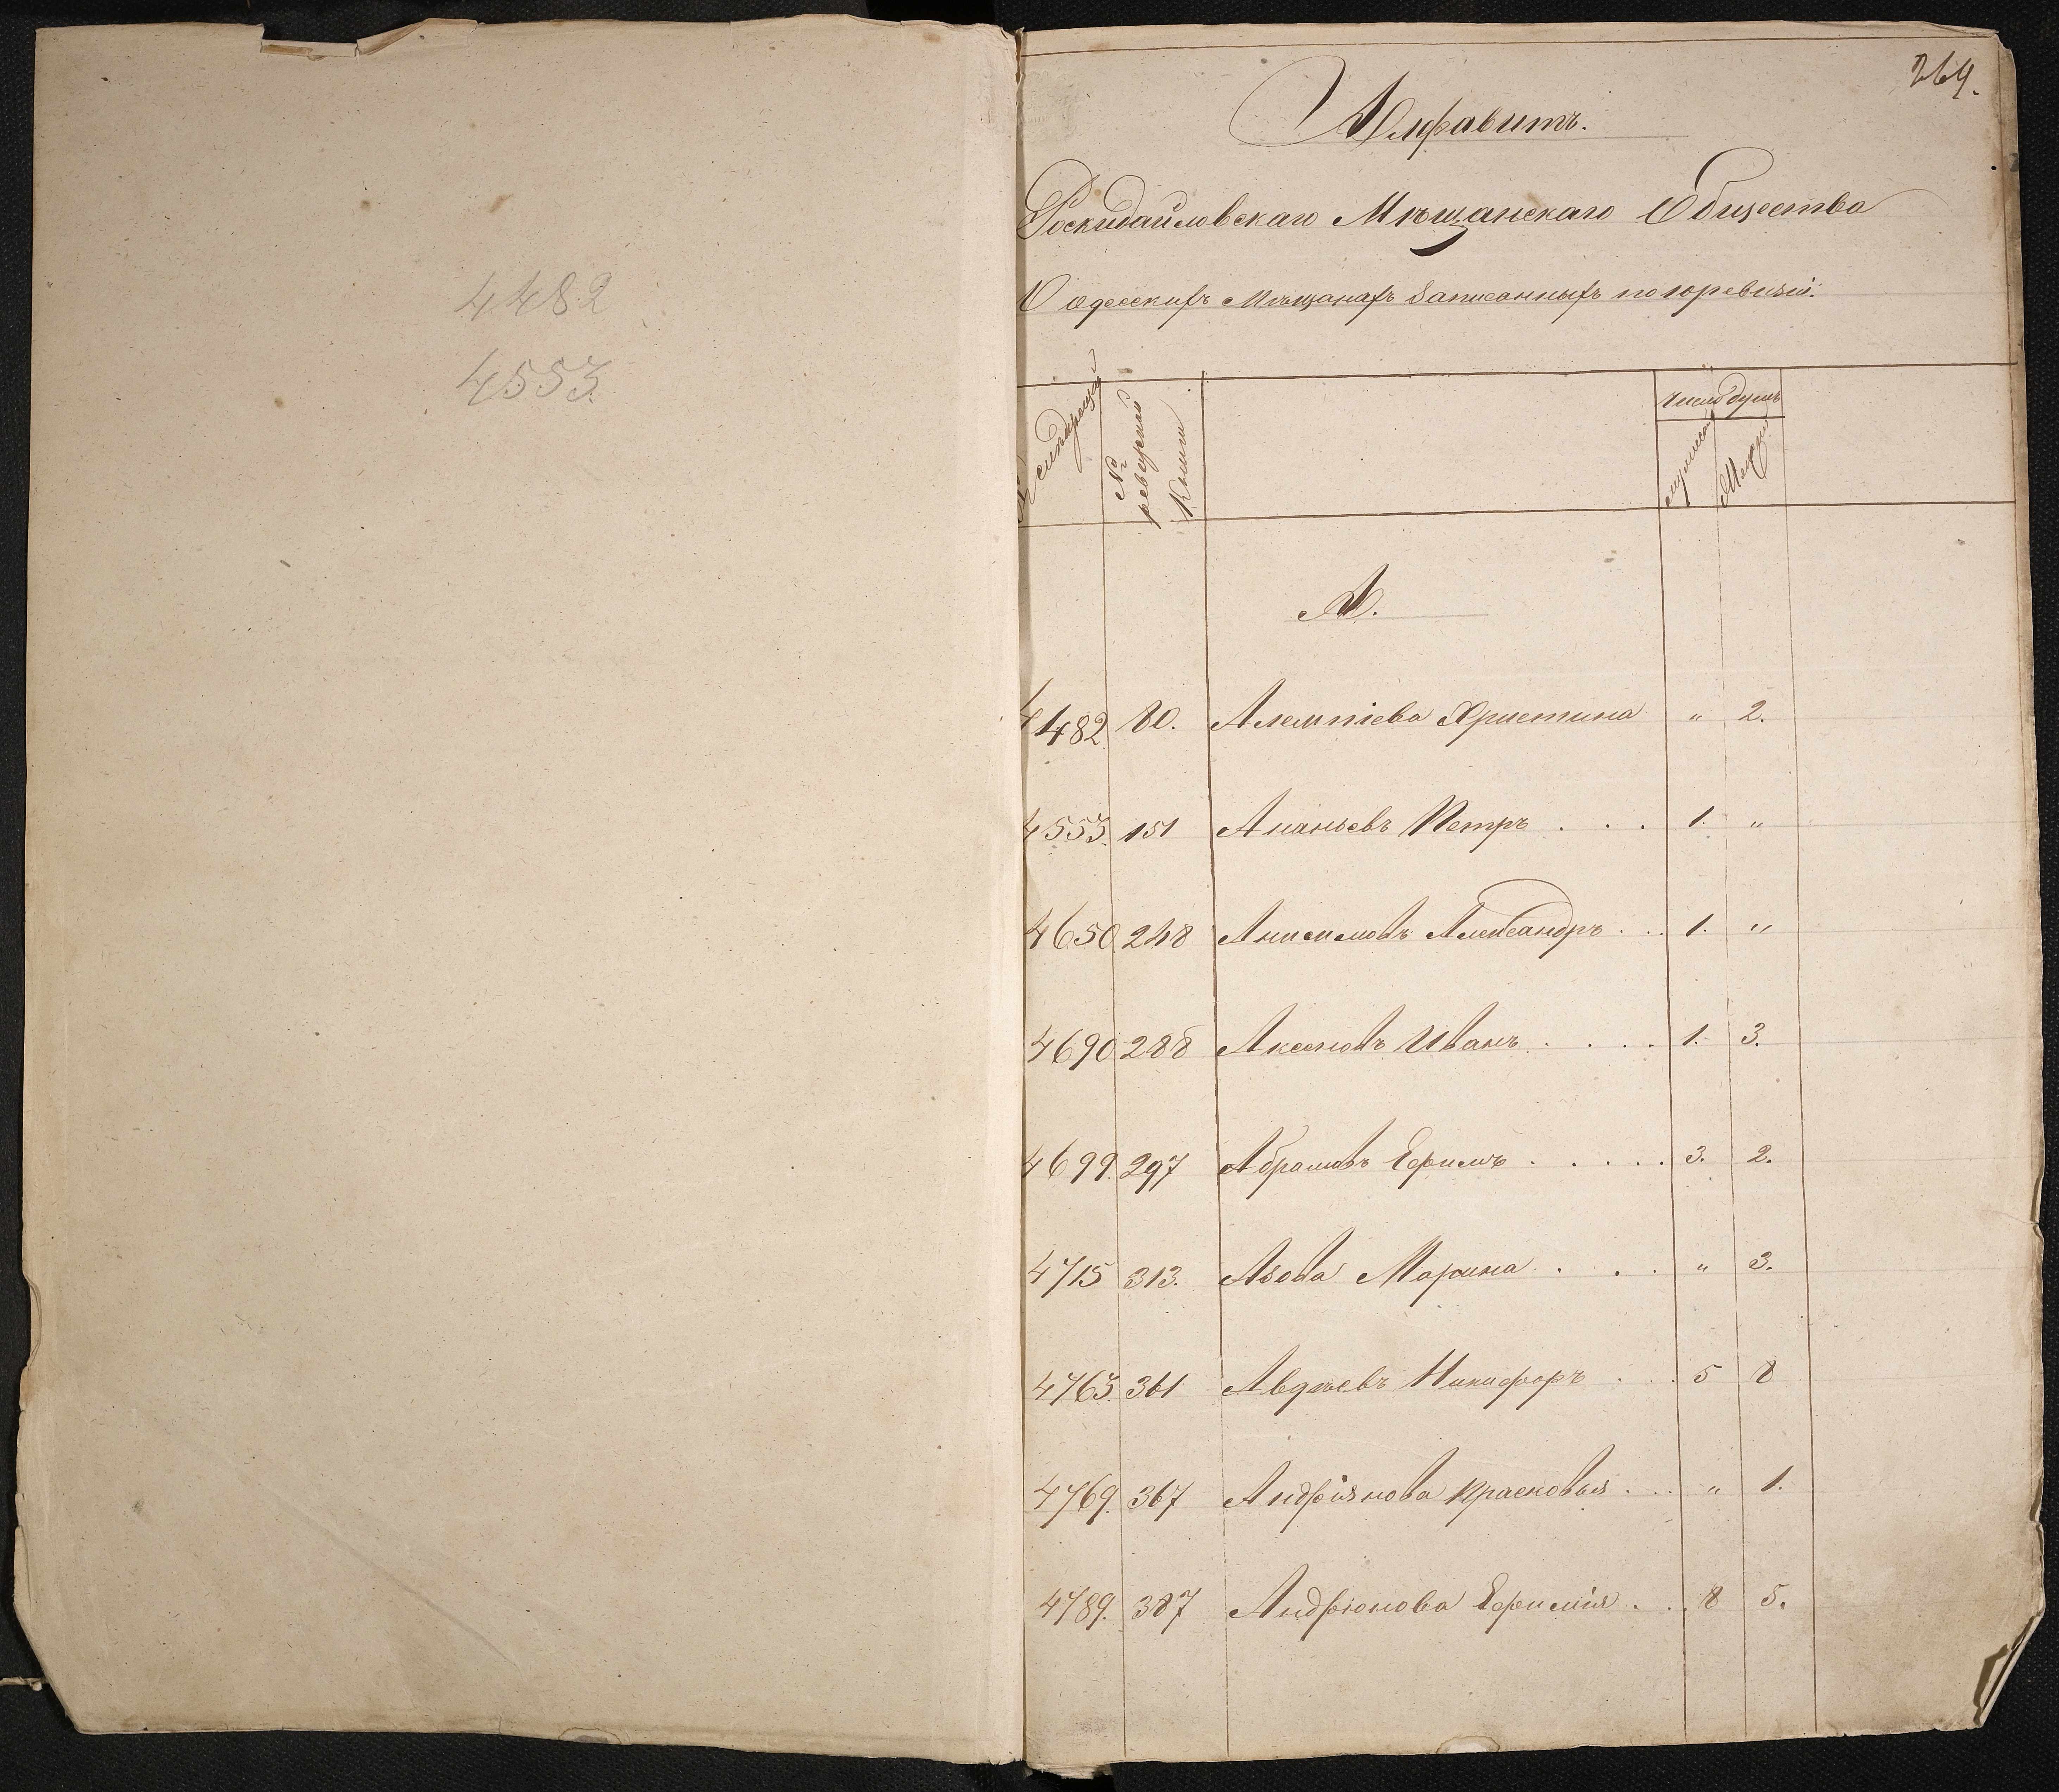 4482
4553.
264.
Алфавитъ.
Роскидайловскаго Мѣщанскаго Общества
О одесскихъ мѣщанахъ записанныхъ по 10 ревизіи.
№
ревизской
книги
число душъ
A.
4482. 80. Алемпіева Христина " 2.
4553. 151 Ананьевъ Петръ . . . 1. "
4650. 248 Анисимовъ Александръ . . . 1. "
4690 288 Аксеновъ Иванъ . . . . 1. 3.
4699. 297 Абрамовъ Ефимъ . . . . . 3. 2.
4715 313. Азова Марина . . . " 3.
4763. 361 Авдѣевъ Никифоръ . . . 5 8
4769. 367 Андріянова Прасковья . . . " 1.
4789. 387 Андріонова Ефимія . . . 8 5.